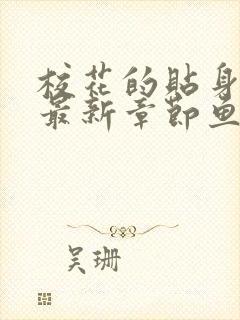 校花的贴身
最新章节鱼
吴珊